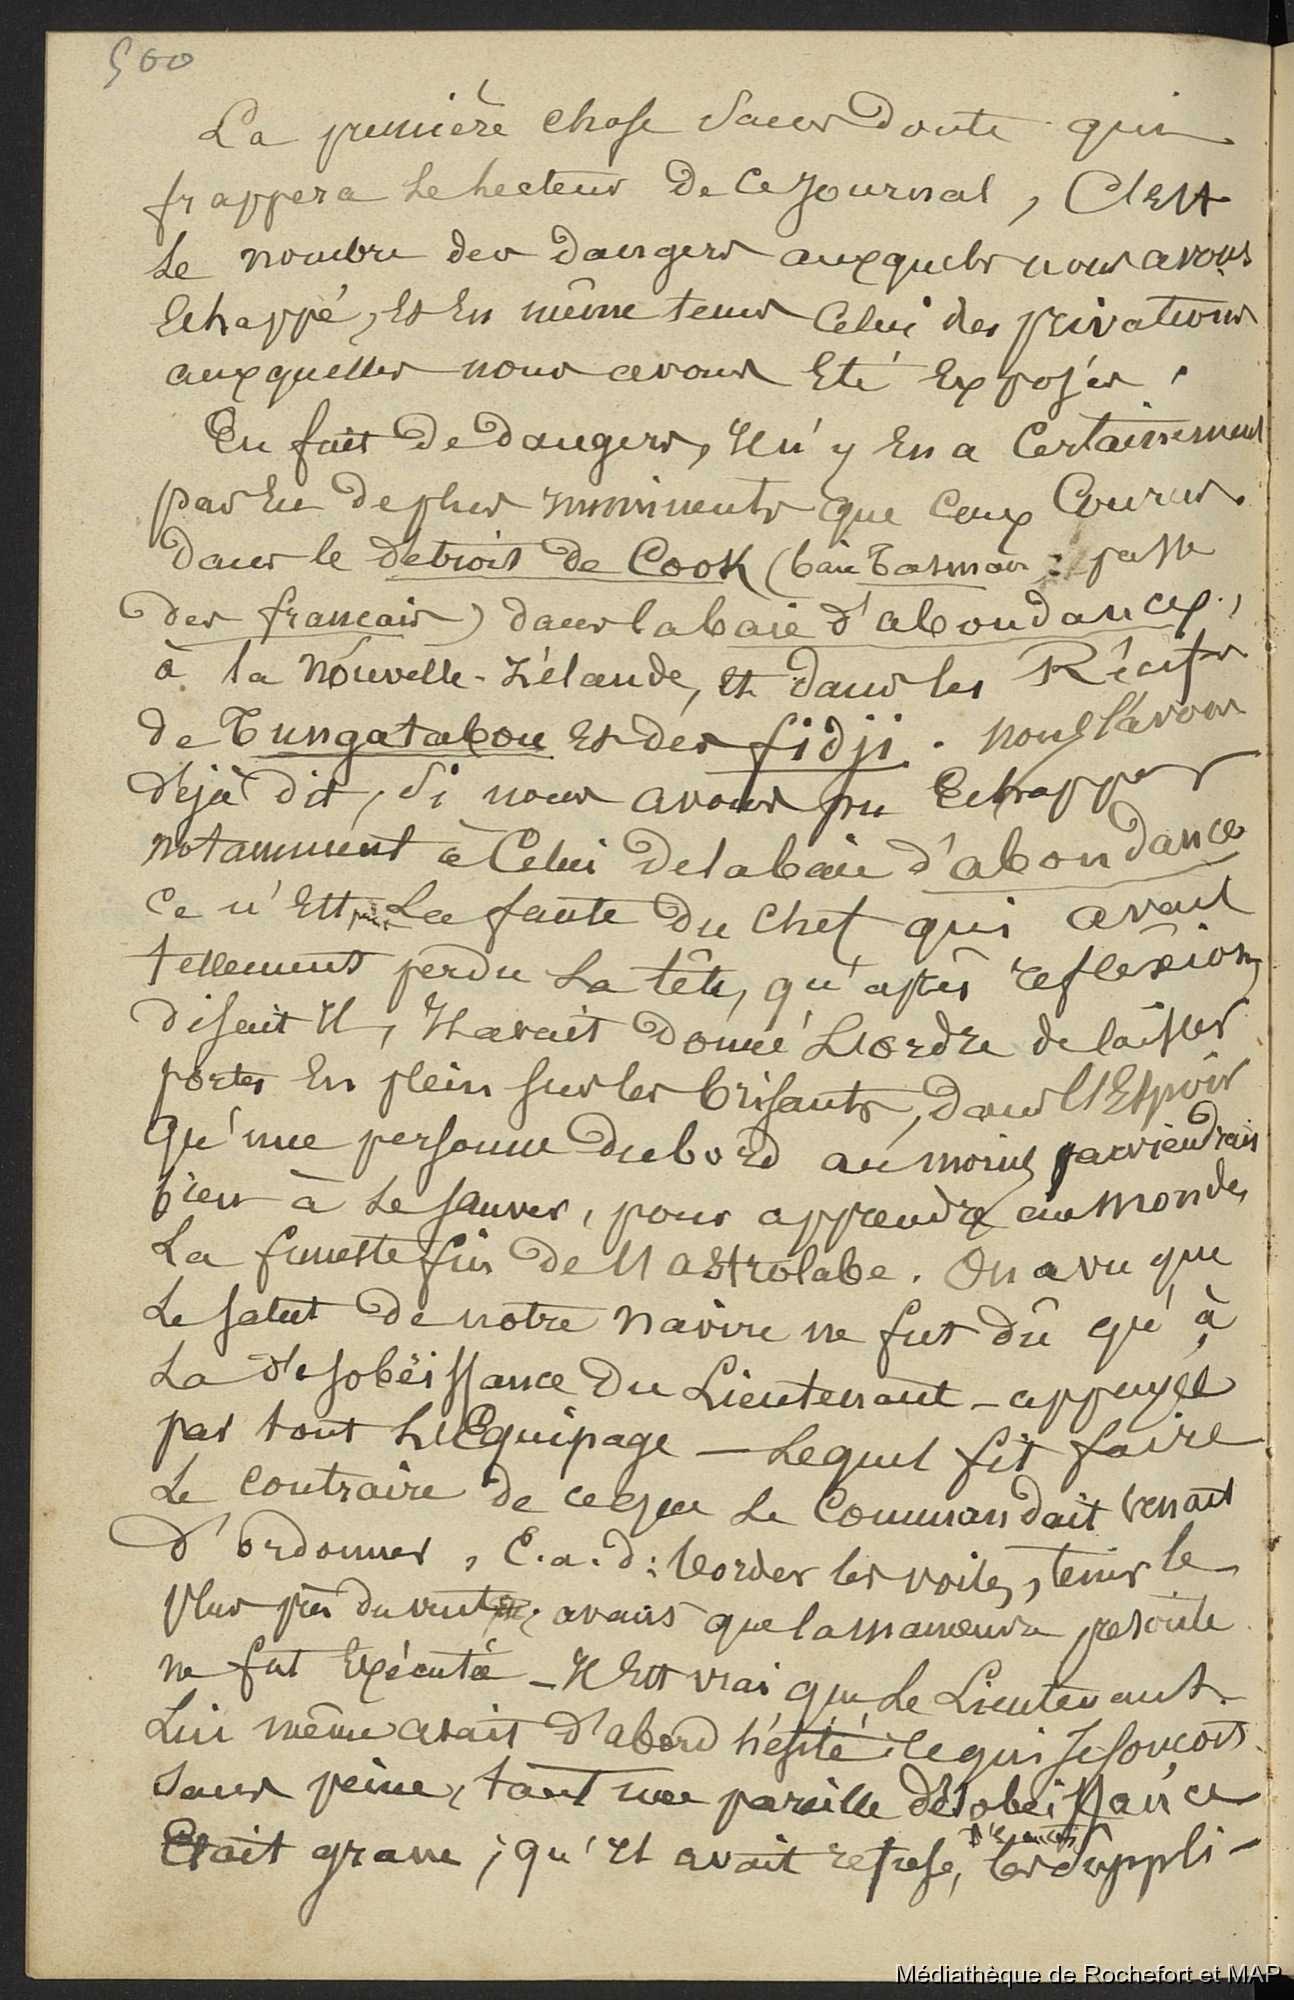 500
La première chose sans doute qui
frappera le lecteur de ce journal, c'est
le nombre des dangers auxquels nous avons
échappé, et en même tems celui des privations
auxquelles nous avons été exposés.
En fait de dangers, il n'y en a certainement
pas eu de plus imminents que ceux courus
dans le détroit de Cook (baie Tasman : passe
des français) dans la baie d'abondance,
à la Nouvelle-Zélande, et dans les Récifs
de Tungatabou et des fidji. nous l'avons
déjà dit, si nous avons pu échapper
notamment à celui de la baie d'abondance
ce n'est pas la faute du chef qui avait
tellement perdu la tête, qu'après reflexion,
disait il, il avait donné l'ordre de laisser
porter en plein sur les brisants, dans l'espoir
qu'une personne du bord au moins parviendrait
bien à se sauver, pour apprendre au monde,
la funeste fin de l'astrolabe. On a vu que
le salut de notre navire ne fut dû qu'à
la désobéissance du Lieutenant - appuyée
par tout l'Equipage - lequel fit faire
le contraire de ce que le commandait venait
d'ordonner, c.a.d: border les voiles, tenir le
plus près du vent, avant que la manoeuvre
ne fut exécutée - il est vrai que le Lieutenant
lui même avait d'abord hésité, ce qui se conçoit
sans peine, tant une pareille désobéissance
était grave ; qu'il avait refusé, les suppli-
Médiathèque de Rochefort et MAP